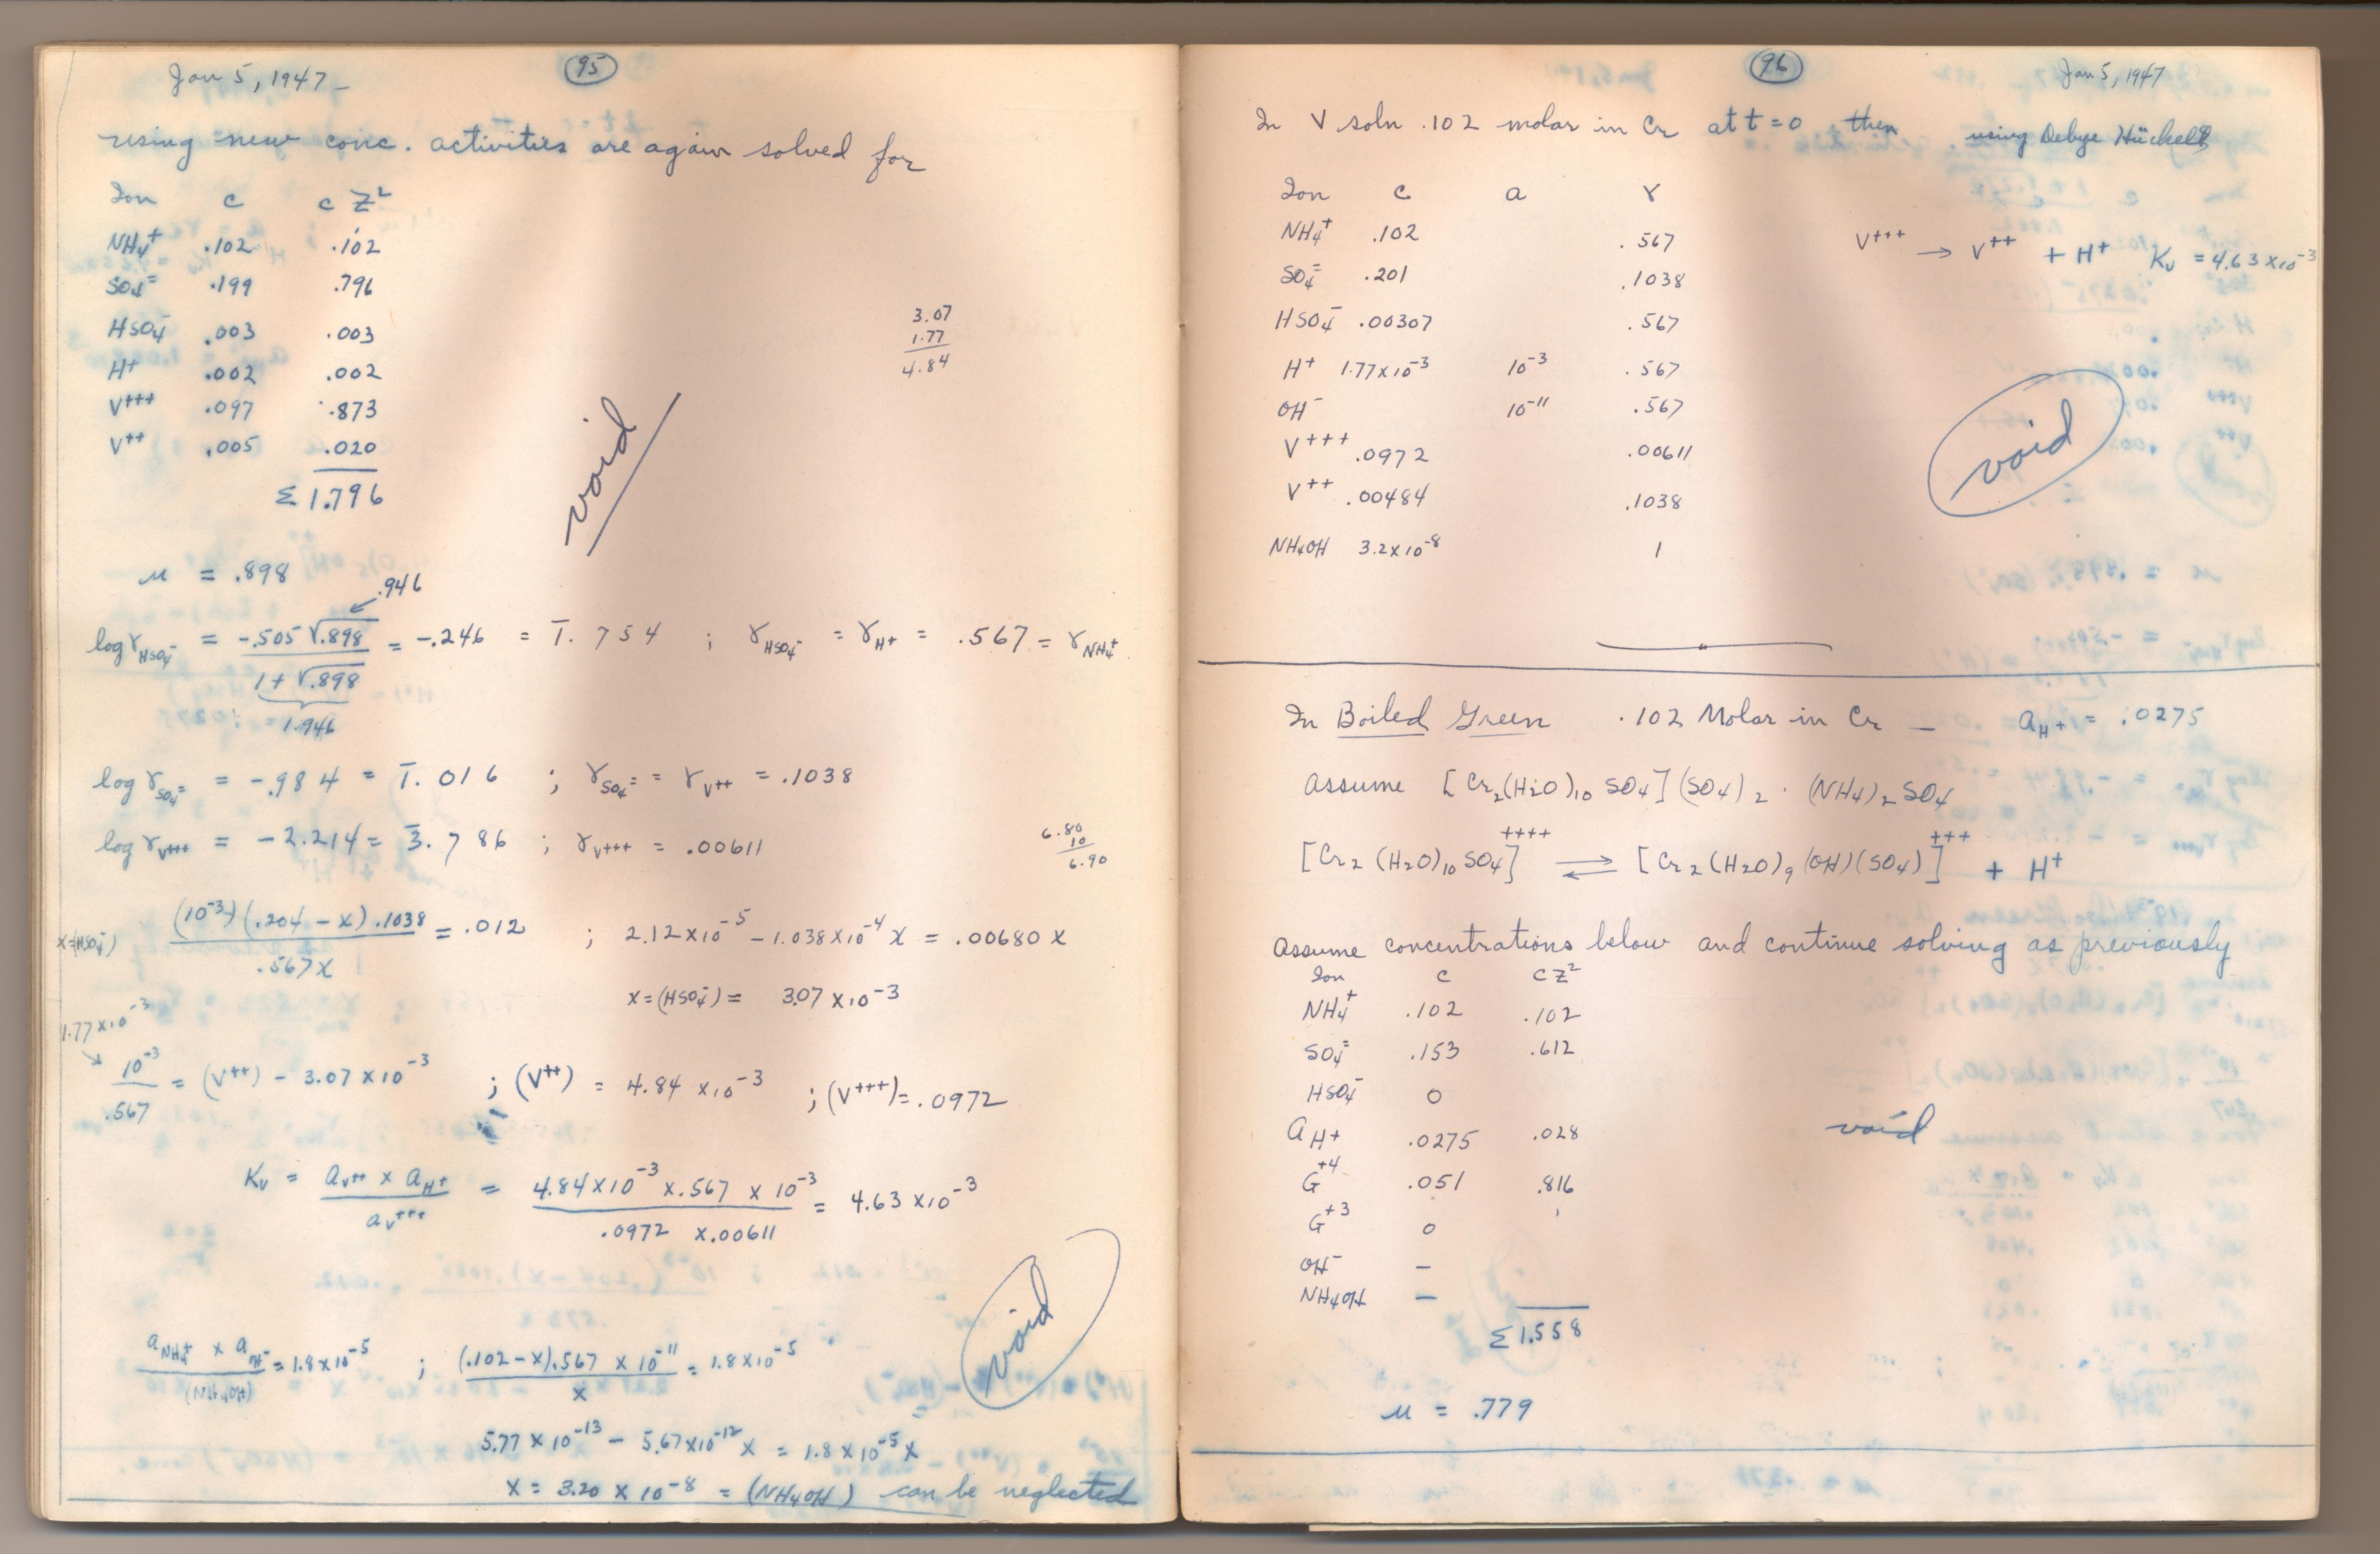 Jan 5, 1947 –
95
using new conc. activities are again solved for
Ion c c Z²
NH₄⁺ .102 .102
SO₄⁼ .199 .796
HSO₄⁻ .003 .003
H⁺ .002 .002
V⁺⁺⁺ .097 .873
V⁺⁺ .005 .020
Σ 1.796
3.07
1.77
4.84
void
μ = .898
.946
log γHSO₄⁻ = -.505 √.898 / 1 + √.898 = -.246 = 1̅.754 ; γHSO₄⁻ = γH⁺ = .567 = γNH₄⁺
1.946
log γSO₄⁼ = -.984 = 1̅.016 ; γSO₄⁼ = γV⁺⁺ = .1038
log γV⁺⁺⁺ = -2.214 = 3̅.786 ; γV⁺⁺⁺ = .00611
6.80
10
6.90
x=(HSO₄⁻) (10⁻³)(.204 - x).1038 / .567x = .012 ; 2.12x10⁻⁵ - 1.038x10⁻⁴ x = .00680 x
x=(HSO₄⁻) = 3.07 x10⁻³
1.77 x10⁻³
10⁻³ / .567 = (V⁺⁺) - 3.07 x10⁻³ ; (V⁺⁺) = 4.84 x10⁻³ ; (V⁺⁺⁺) = .0972
Kᵥ = aV⁺⁺ x aH⁺ / aV⁺⁺⁺ = 4.84x10⁻³ x.567 x 10⁻³ / .0972 x.00611 = 4.63 x10⁻³
void
aNH₄⁺ x aOH⁻ / (NH₄OH) = 1.8x10⁻⁵ ; (.102-x).567 x 10⁻¹¹ / x = 1.8x10⁻⁵
5.77 x 10⁻¹³ - 5.67x10⁻¹² x = 1.8 x 10⁻⁵ x
x = 3.20 x 10⁻⁸ = (NH₄OH) can be neglected
96
Jan 5, 1947
In V soln .102 molar in Cr at t=0 then using Debye Hückel
Ion c a γ
NH₄⁺ .102 .567
SO₄⁼ .201 .1038
HSO₄⁻ .00307 .567
H⁺ 1.77x10⁻³ 10⁻³ .567
OH⁻ 10⁻¹¹ .567
V⁺⁺⁺ .0972 .00611
V⁺⁺ .00484 .1038
NH₄OH 3.2x10⁻⁸ 1
V⁺⁺⁺ → V⁺⁺ + H⁺ Kᵥ = 4.63x10⁻³
void
In Boiled Green .102 Molar in Cr — aH⁺ = .0275
Assume [Cr₂(H₂O)₁₀ SO₄](SO₄)₂ · (NH₄)₂SO₄
[Cr₂(H₂O)₁₀SO₄]⁺⁺⁺⁺ ⇌ [Cr₂(H₂O)₉(OH)(SO₄)]⁺⁺⁺ + H⁺
Assume concentrations below and continue solving as previously
Ion c cZ²
NH₄⁺ .102 .102
SO₄⁼ .153 .612
HSO₄⁻ 0
aH⁺ .0275 .028
G⁺⁴ .051 .816
G⁺³ 0
OH⁻ –
NH₄OH –
Σ 1.558
void
μ = .779